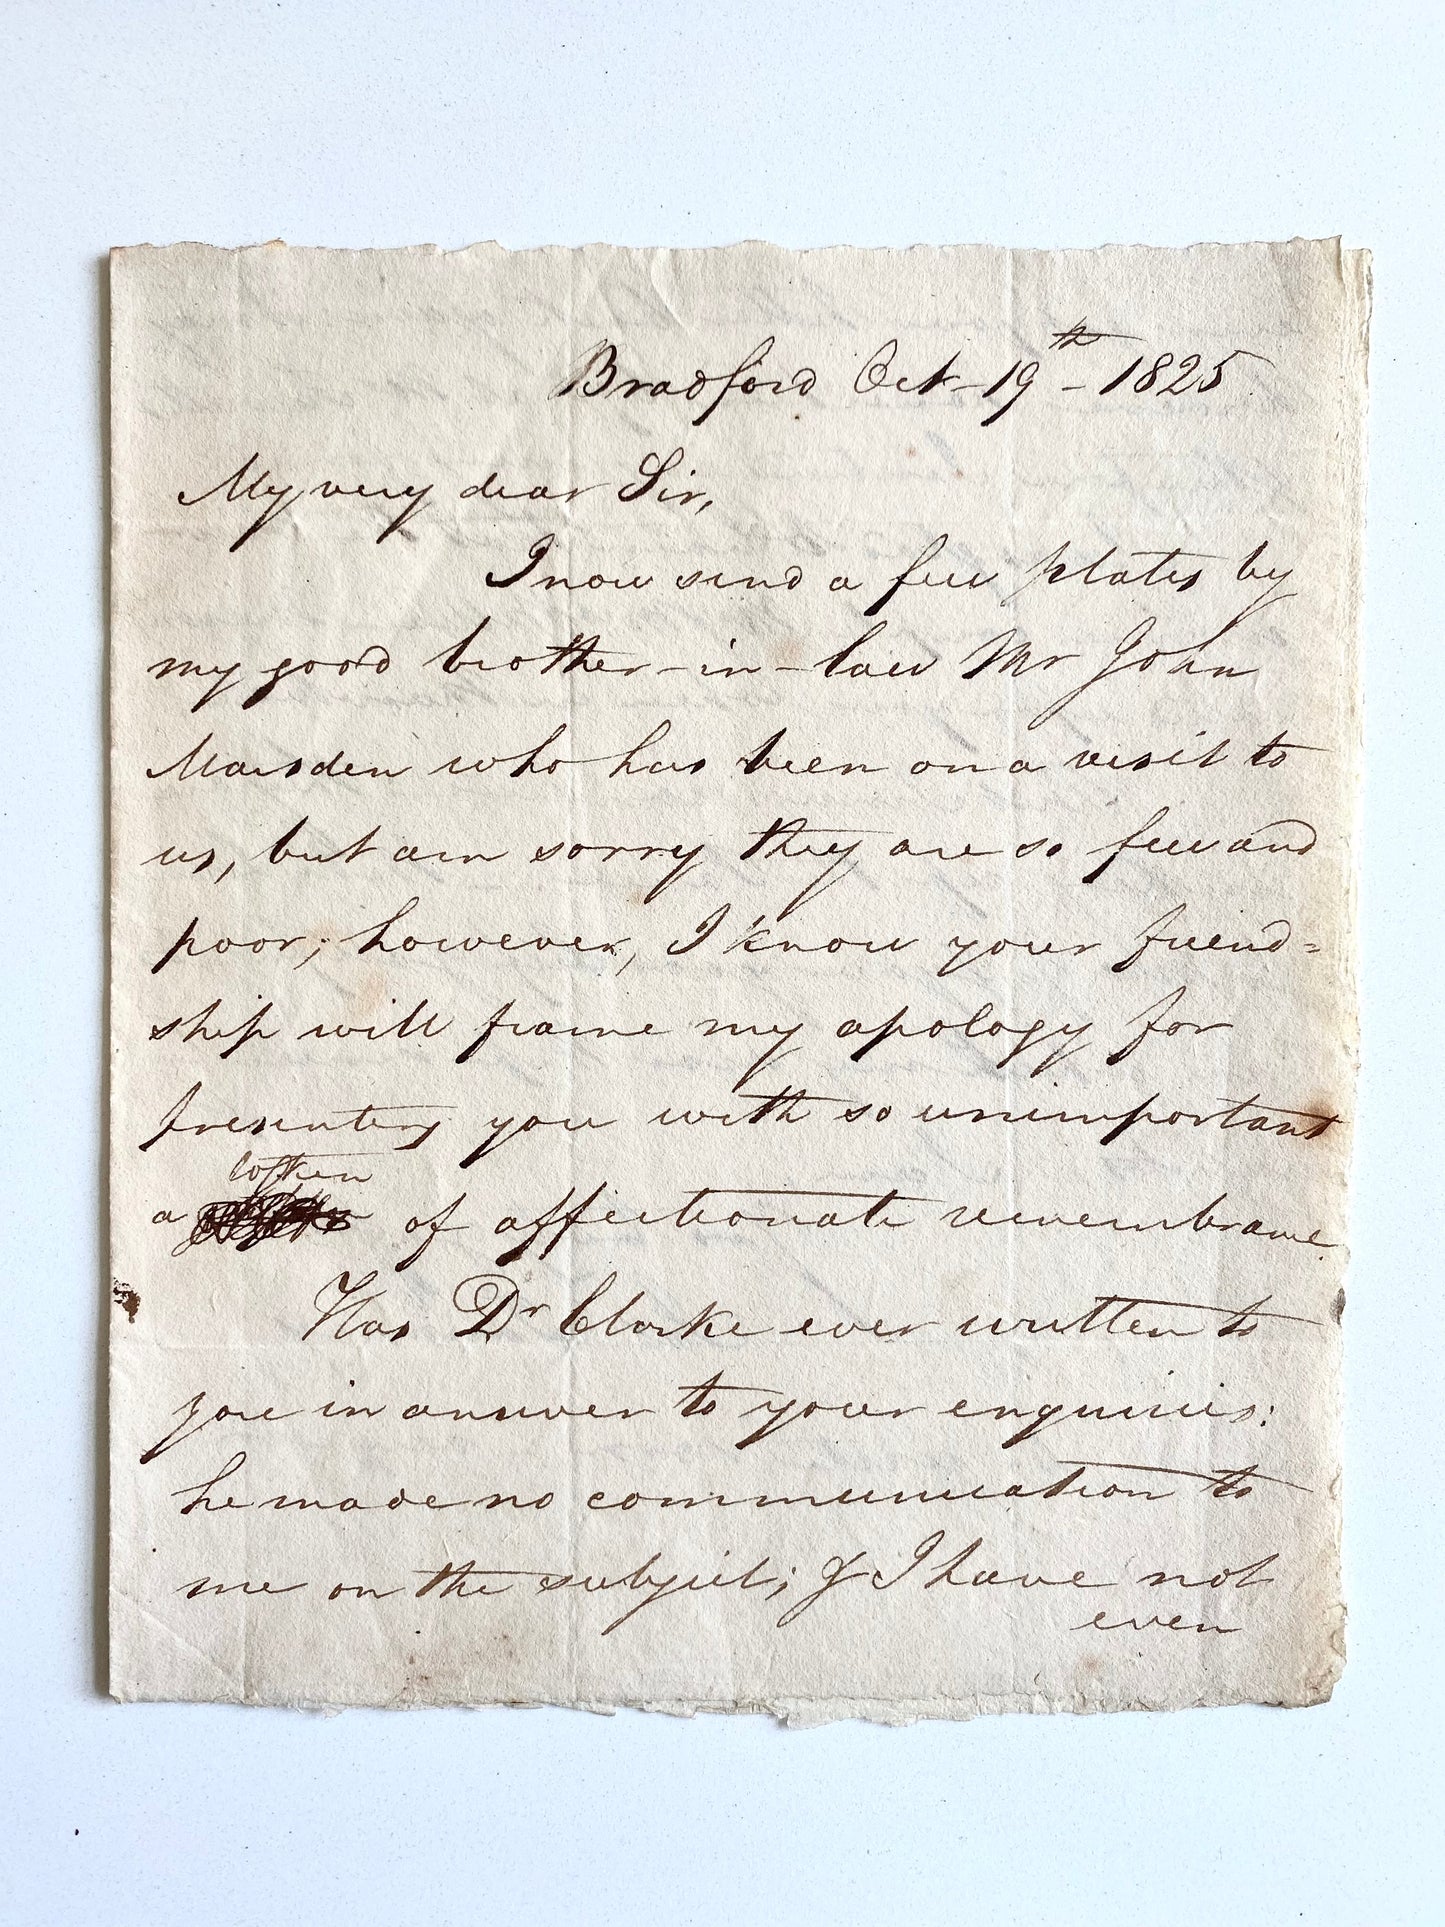 Bradford Oct - 19th - 1825
My very dear Sir,
I now send a few plates by
my good brother-in-law Mr John
Marsden who has been on a visit to
us, but am sorry they are so few and
poor; however, I know your friend=
ship will frame my apology for
presenting you with so unimportant
a of affectionate remembrance.
Has Dr Clarke ever written to
you in answer to your enquiries:
he made no communication to
me on the subject; & I have not
even